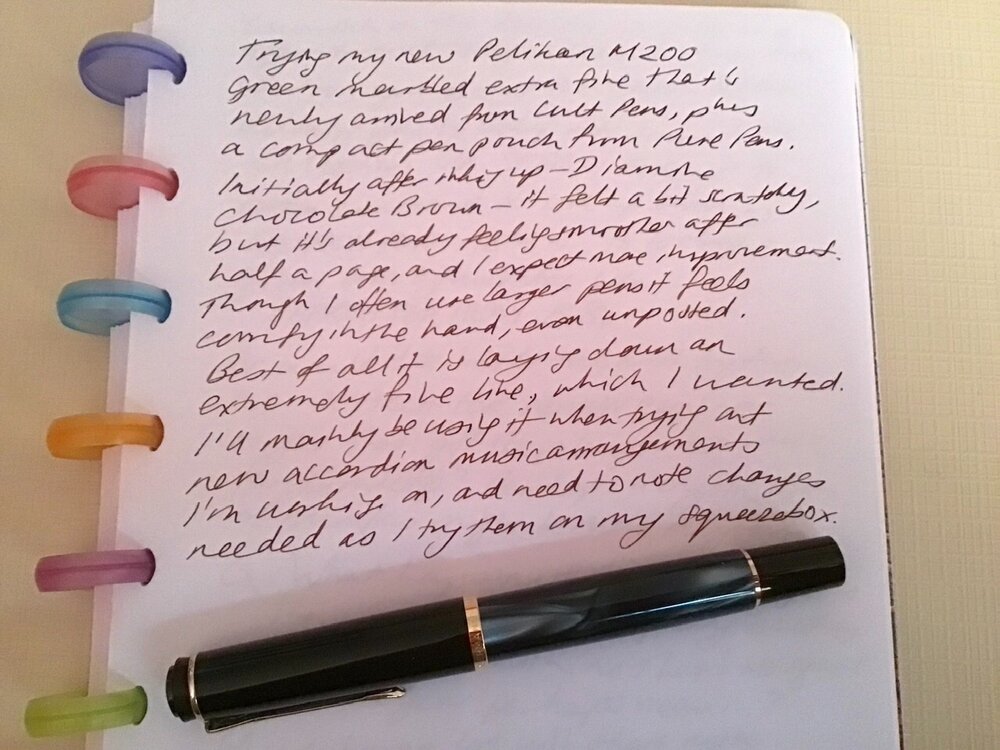 Trying my new Pelikan M200
Green marbled extra fine that's
newly arrived from Cult Pens, plus
a compact pen pouch from Pure Pens.
Initially after inking up – Diamine
Chocolate Brown – it felt a bit scratchy,
but it's already feeling smoother after
half a page, and I expect more improvement.
Though I often use larger pens it feels
comfy in the hand, even unposted.
Best of all it is laying down an
extremely fine line, which I wanted.
I'll mainly be using it when trying out
new accordion music arrangements
I'm working on, and need to note changes
needed as I try them on my squeezebox.